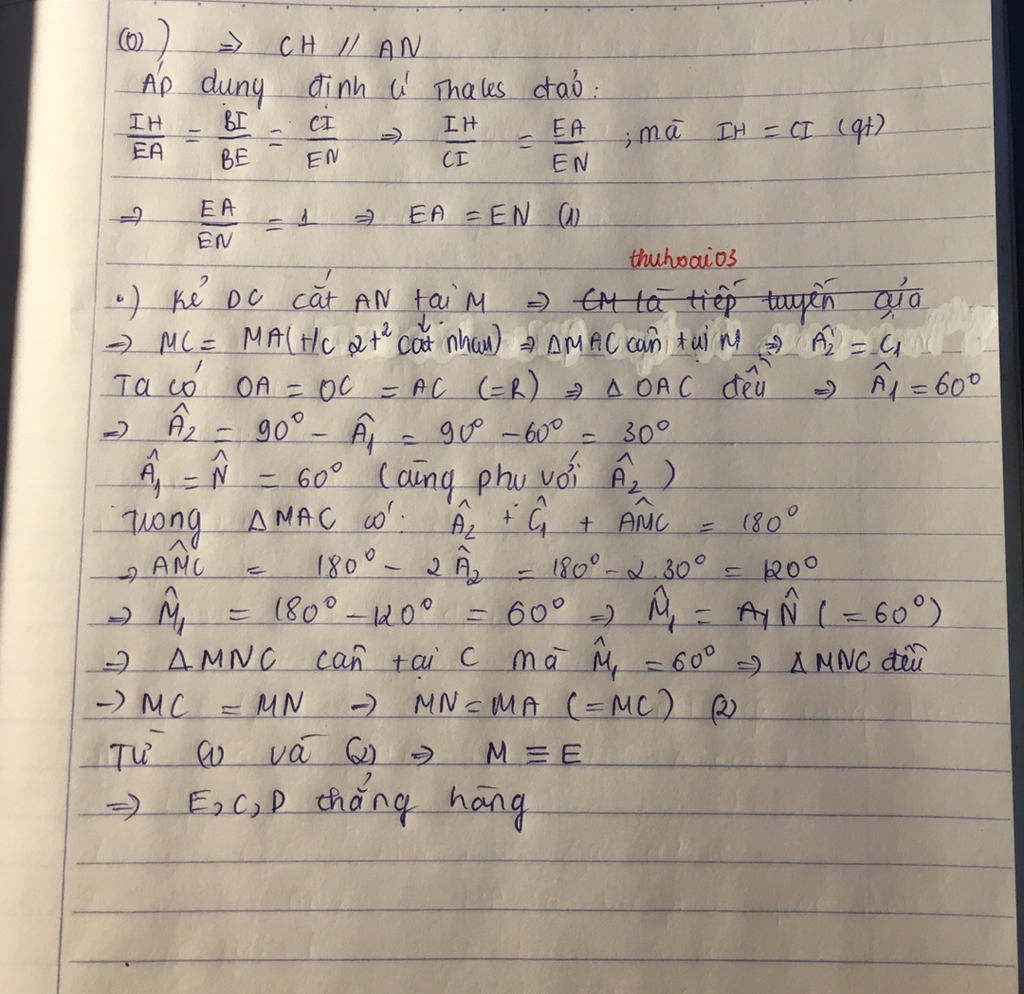 (0) ) ⇒ CH // AN
Áp dụng định lí Thales đảo:
IH/EA = BI/BE = CI/EN ⇒ IH/CI = EA/EN ; mà IH = CI (gt)
⇒ EA/EN = 1 ⇒ EA = EN (1)
thuhoai03
•) Kẻ DC cắt AN tại M ⇒ CM là tiếp tuyến của
⇒ MC = MA (t/c 2 t² cắt nhau) ⇒ ΔMAC cân tại M ⇒ Â₂ = Ĉ₁
Ta có OA = OC = AC (=R) ⇒ Δ OAC đều ⇒ Â₁ = 60°
⇒ Â₂ = 90° - Â₁ = 90° - 60° = 30°
Â₁ = N̂ = 60° (cùng phụ với Â₂)
Trong ΔMAC có: Â₂ + Ĉ₁ + AM̂C = 180°
⇒ AM̂C = 180° - 2Â₂ = 180° - 2.30° = 120°
⇒ M̂₁ = 180° - 120° = 60° ⇒ M̂₁ = N̂ (=60°)
⇒ ΔMNC cân tại C mà M̂₁ = 60° ⇒ ΔMNC đều
→ MC = MN → MN = MA (=MC) (2)
Từ (1) và (2) ⇒ M ≡ E
⇒ E, C, D thẳng hàng